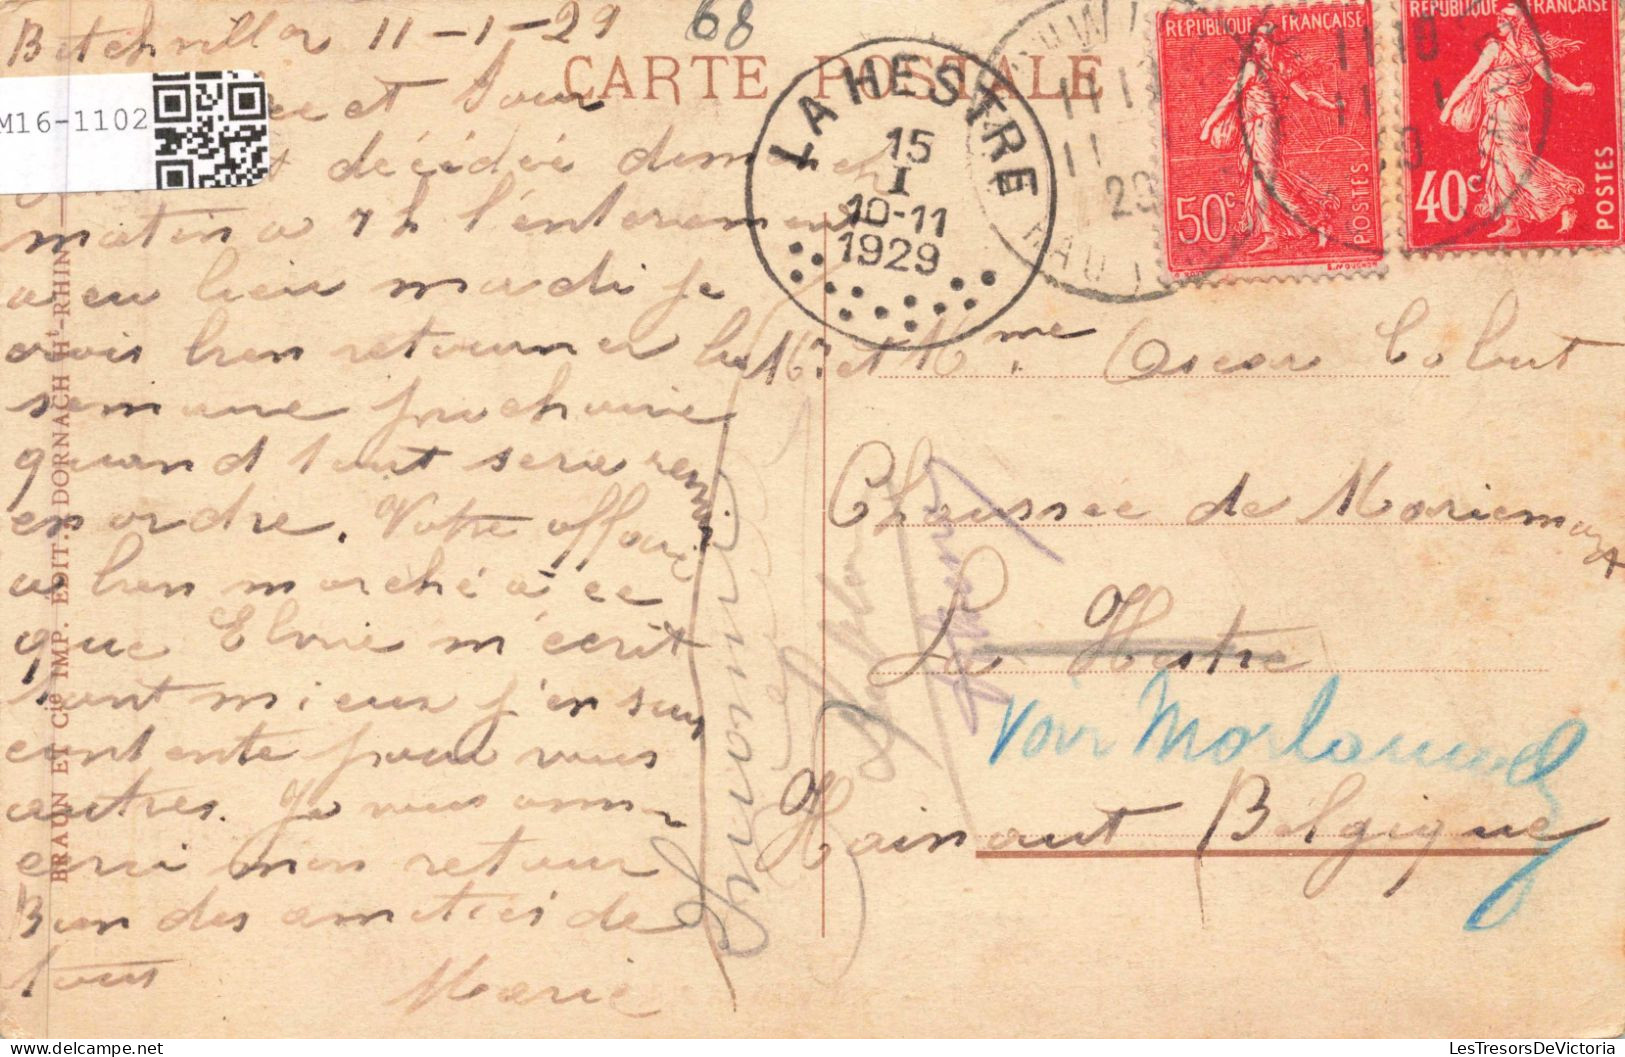 Betchviller 11-1-29
68
CARTE POSTALE
M16-1102
et Louis
décidé dimanch
matin a 7 h l'enterement
a eu lieu mardi je
crois bien retourner la
semaine prochaine
quand tout sera remis
en ordre. Votre
a bien marché à ce
que Elvire m'écrit
tant mieux j'en suis
contente pour vous
autres. Je vous ann-
cerai mon retour
Bien des amitiés de
tous Marie
LA HESTRE
15
I
10-11
1929
REPUBLIQUE FRANÇAISE
50c
POSTES
REPUBLIQUE FRANÇAISE
40c
POSTES
Mr et Mme Oscar Colbut
Chaussée de Mariemont
La Hestre
Voir Morlanwelz
Hainaut Belgique
BRAUN ET Cie IMP. EDIT. DORNACH Ht-RHIN
LesTresorsDeVictoria
delcampe.net